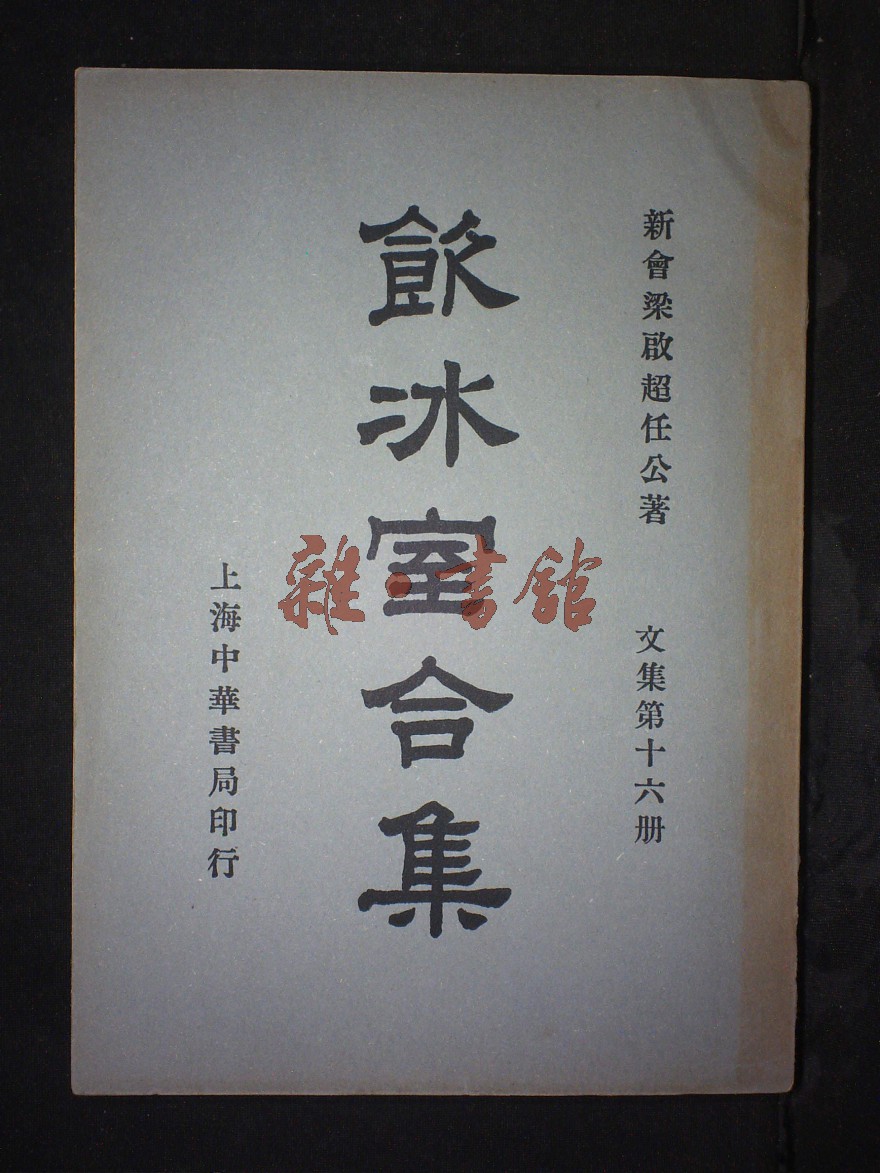 新會梁啟超任公著
文集第十六册
飲冰室合集
上海中華書局印行
雜·書館